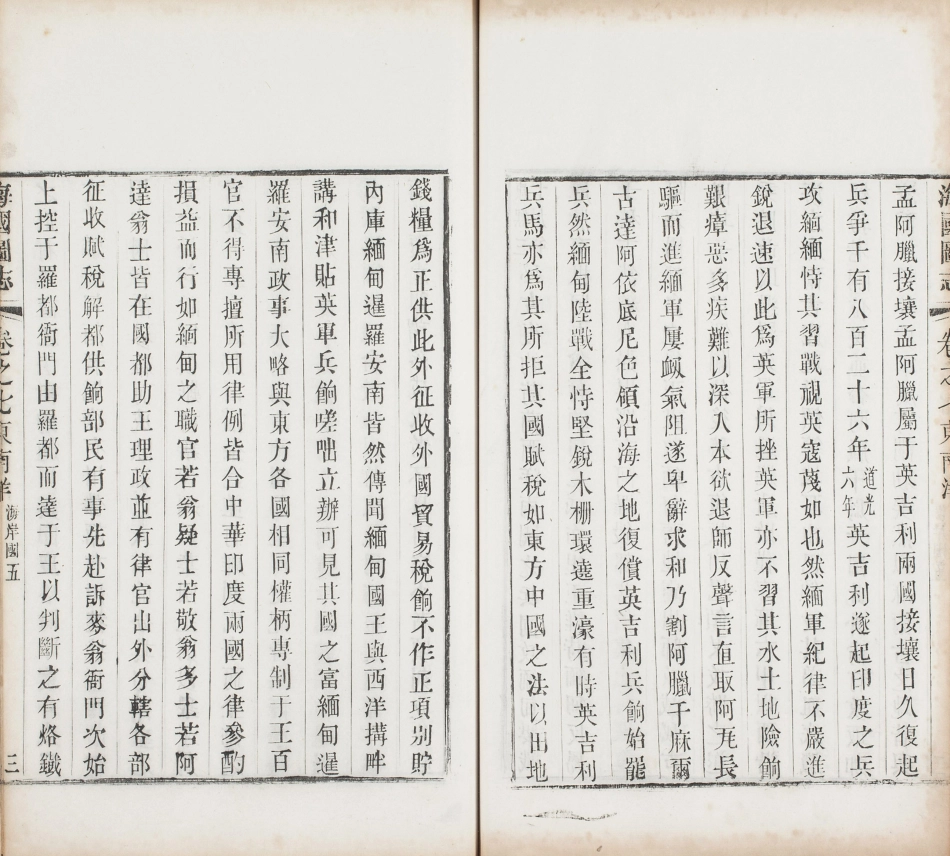 海國圖志 卷之七東南洋
孟阿臘接壤孟阿臘屬于英吉利兩國接壤日久復起
兵爭千有八百二十六年道光六年英吉利遂起印度之兵
攻緬緬恃其習戰視英寇蔑如也然緬軍紀律不嚴進
銳退速以此爲英軍所挫英軍亦不習其水土地險餉
艱瘴惡多疾難以深入本欲退師反聲言直取阿瓦長
驅而進緬軍屢衂氣阻遂卑辭求和乃割阿臘千麻爾
古達阿依底尼色領沿海之地復償英吉利兵餉始罷
兵然緬甸陸戰全恃堅銳木柵環遶重濠有時英吉利
兵馬亦爲其所拒其國賦稅如東方中國之法以田地
錢糧爲正供此外征收外國貿易稅餉不作正項别貯
內庫緬甸暹羅安南皆然傳聞緬甸國王與西洋搆畔
講和津貼英軍兵餉嗟咄立辦可見其國之富緬甸暹
羅安南政事大略與東方各國相同權柄專制于王百
官不得專擅所用律例皆合中華印度兩國之律參酌
損益而行如緬甸之職官若翁疑士若敬翁多士若阿
達翁士皆在國都助王理政並有律官出外分轄各部
征收賦稅解都供餉部民有事先赴訴麥翁衙門次始
上控于羅都衙門由羅都而達于王以判斷之有烙鐵
海國圖志 卷之七東南洋 海岸國五 三